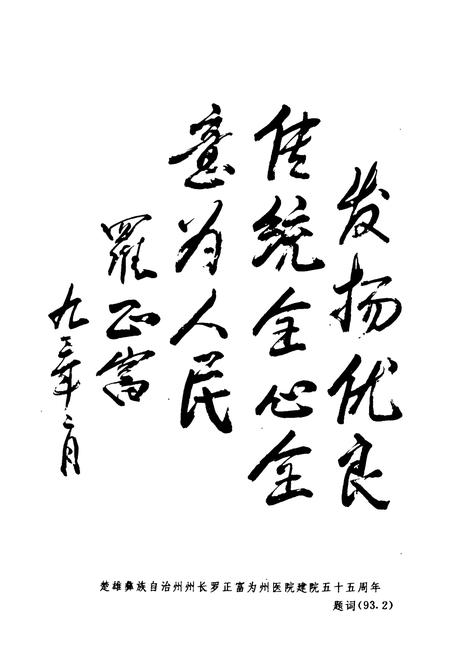 发扬优良
传统全心全
意为人民
羅正富
九三年二月
楚雄彝族自治州州长罗正富为州医院建院五十五周年
题词(93.2)